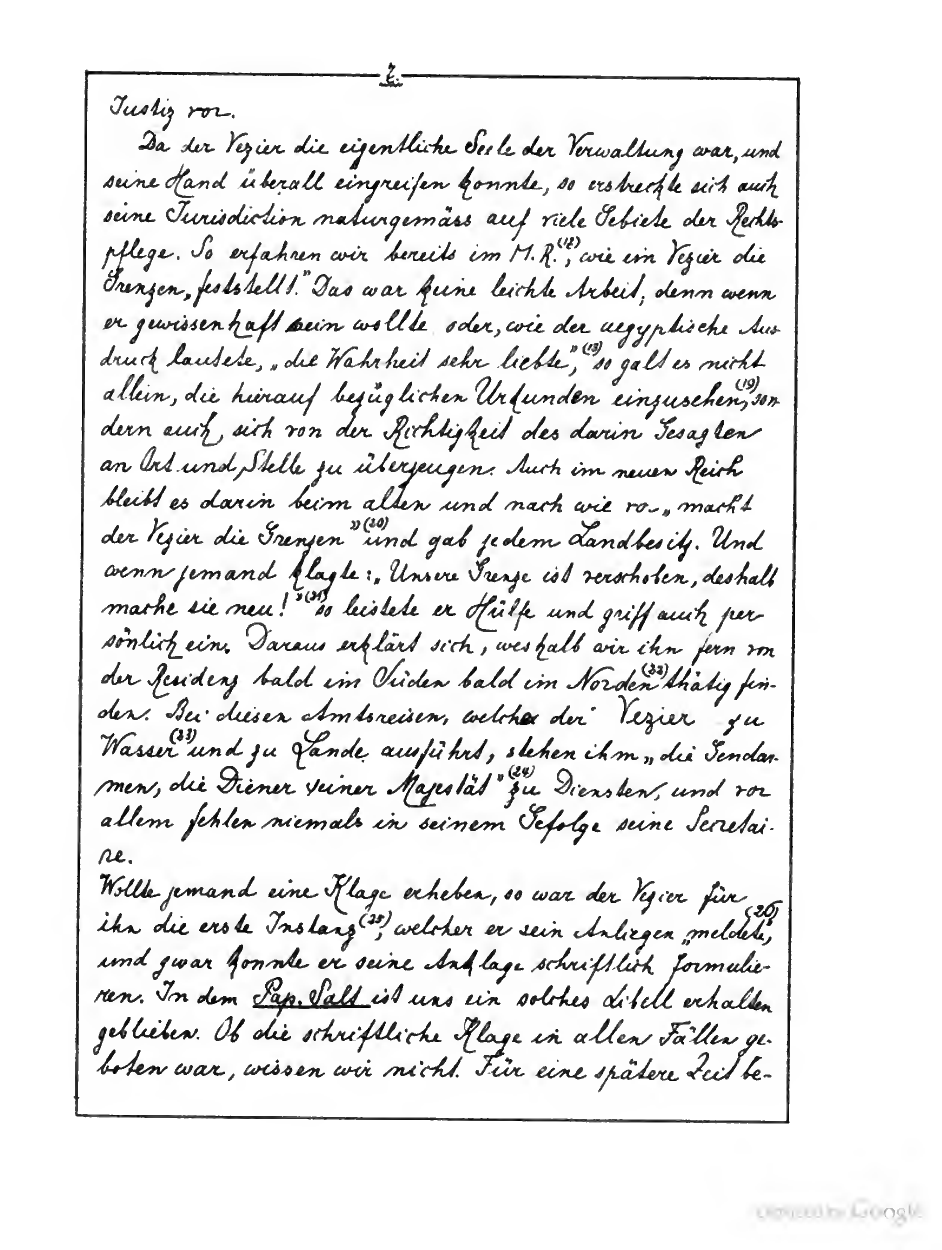 7.
Justiz vor.
Da der Vezier die eigentliche Seele der Verwaltung war, und
seine Hand überall eingreifen konnte, so erstreckte sich auch
seine Jurisdiction naturgemäss auf viele Gebiete der Rechts-
pflege. So erfahren wir bereits im M.R.(12), wie ein Vezier die
Grenzen „feststellt.“ Das war keine leichte Arbeit, denn wenn
er gewissenhaft sein wollte oder, wie der aegyptische Aus-
druck lautete, „die Wahrheit sehr liebte“,(13) so galt es nicht
allein, die hierauf bezüglichen Urkunden einzusehen,(19) son-
dern auch, sich von der Richtigkeit des darin Gesagten
an Ort und Stelle zu überzeugen. Auch im neuen Reich
bleibt es darin beim alten und nach wie vor „macht
der Vezier die Grenzen“(20) und gab jedem Landbesitz. Und
wenn jemand klagte: „Unsere Grenze ist verschoben, deshalb
mache sie neu!“(21) so leistete er Hülfe und griff auch per
sönlich ein. Daraus erklärt sich, weshalb wir ihn fern von
der Residenz bald im Süden bald im Norden(22) thätig fin-
den. Bei diesen Amtsreisen, welche der Vezier zu
Wasser(23) und zu Lande ausführt, stehen ihm „die Gendar-
men, die Diener seiner Majestät“(24) zu Diensten, und vor
allem fehlen niemals in seinem Gefolge seine Secretai-
re.
Wollte jemand eine Klage erheben, so war der Vezier für
ihn die erste Instanz(25), welcher er sein Anliegen „meldete“,(26)
und zwar konnte er seine Anklage schriftlich formulie-
ren. In dem Pap. Salt ist uns ein solches Libell erhalten
geblieben. Ob die schriftliche Klage in allen Fällen ge-
boten war, wissen wir nicht. Für eine spätere Zeit be-
Digitized by Google